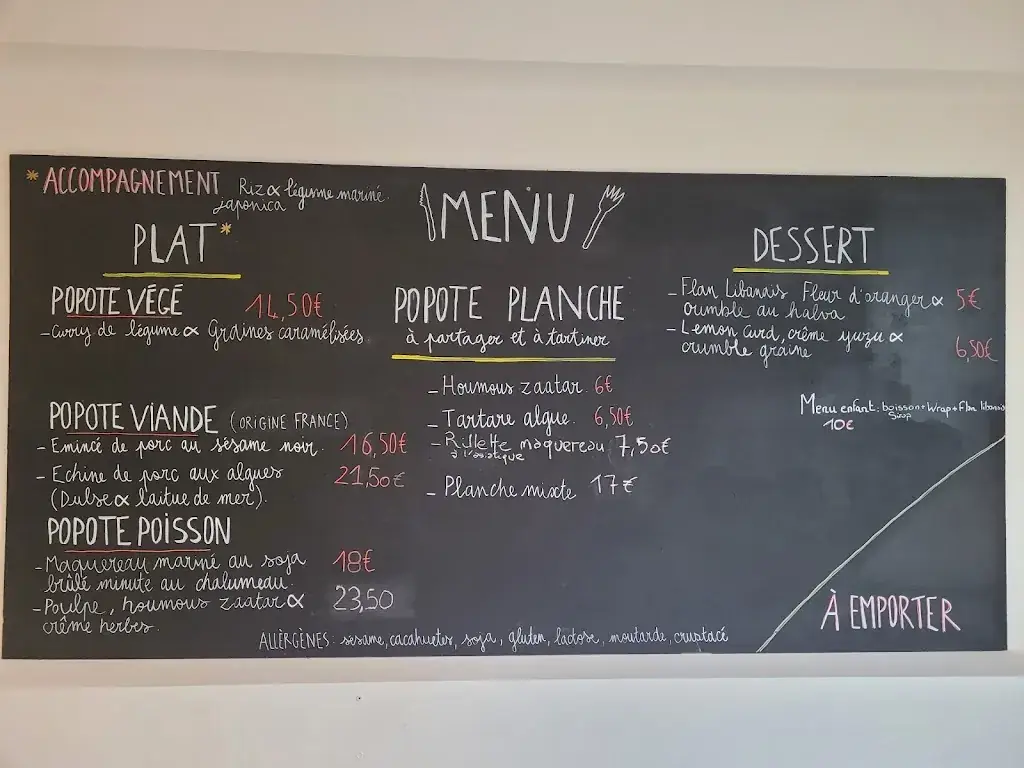 * ACCOMPAGNEMENT Riz & légume mariné
japonica
MENU
PLAT*
POPOTE VÉGÉ 14,50€
- Curry de légume & Graines caramélisées
POPOTE VIANDE (ORIGINE FRANCE)
- Emincé de porc au sésame noir. 16,50€
- Echine de porc aux algues 21,50€
(Dulse & laitue de mer).
POPOTE POISSON
- Maquereau mariné au soja 18€
brûlé minute au chalumeau.
- Poulpe, houmous zaatar & 23,50
crême herbes.
POPOTE PLANCHE
à partager et à tartiner
- Houmous zaatar 6€
- Tartare algue. 6,50€
- Rillette maquereau 7,50€
à l'asiatique
- Planche mixte 17€
DESSERT
- Flan Libanais Fleur d'oranger & 5€
crumble au halva
- Lemon Curd, crême yuzu &
crumble graine 6,50€
Menu enfant: boisson+Wrap+Flan libanais
Sirop
10€
À EMPORTER
ALLÈRGÈNES: sésame, cacahuetes, soja, gluten, lactose, moutarde, crustacé